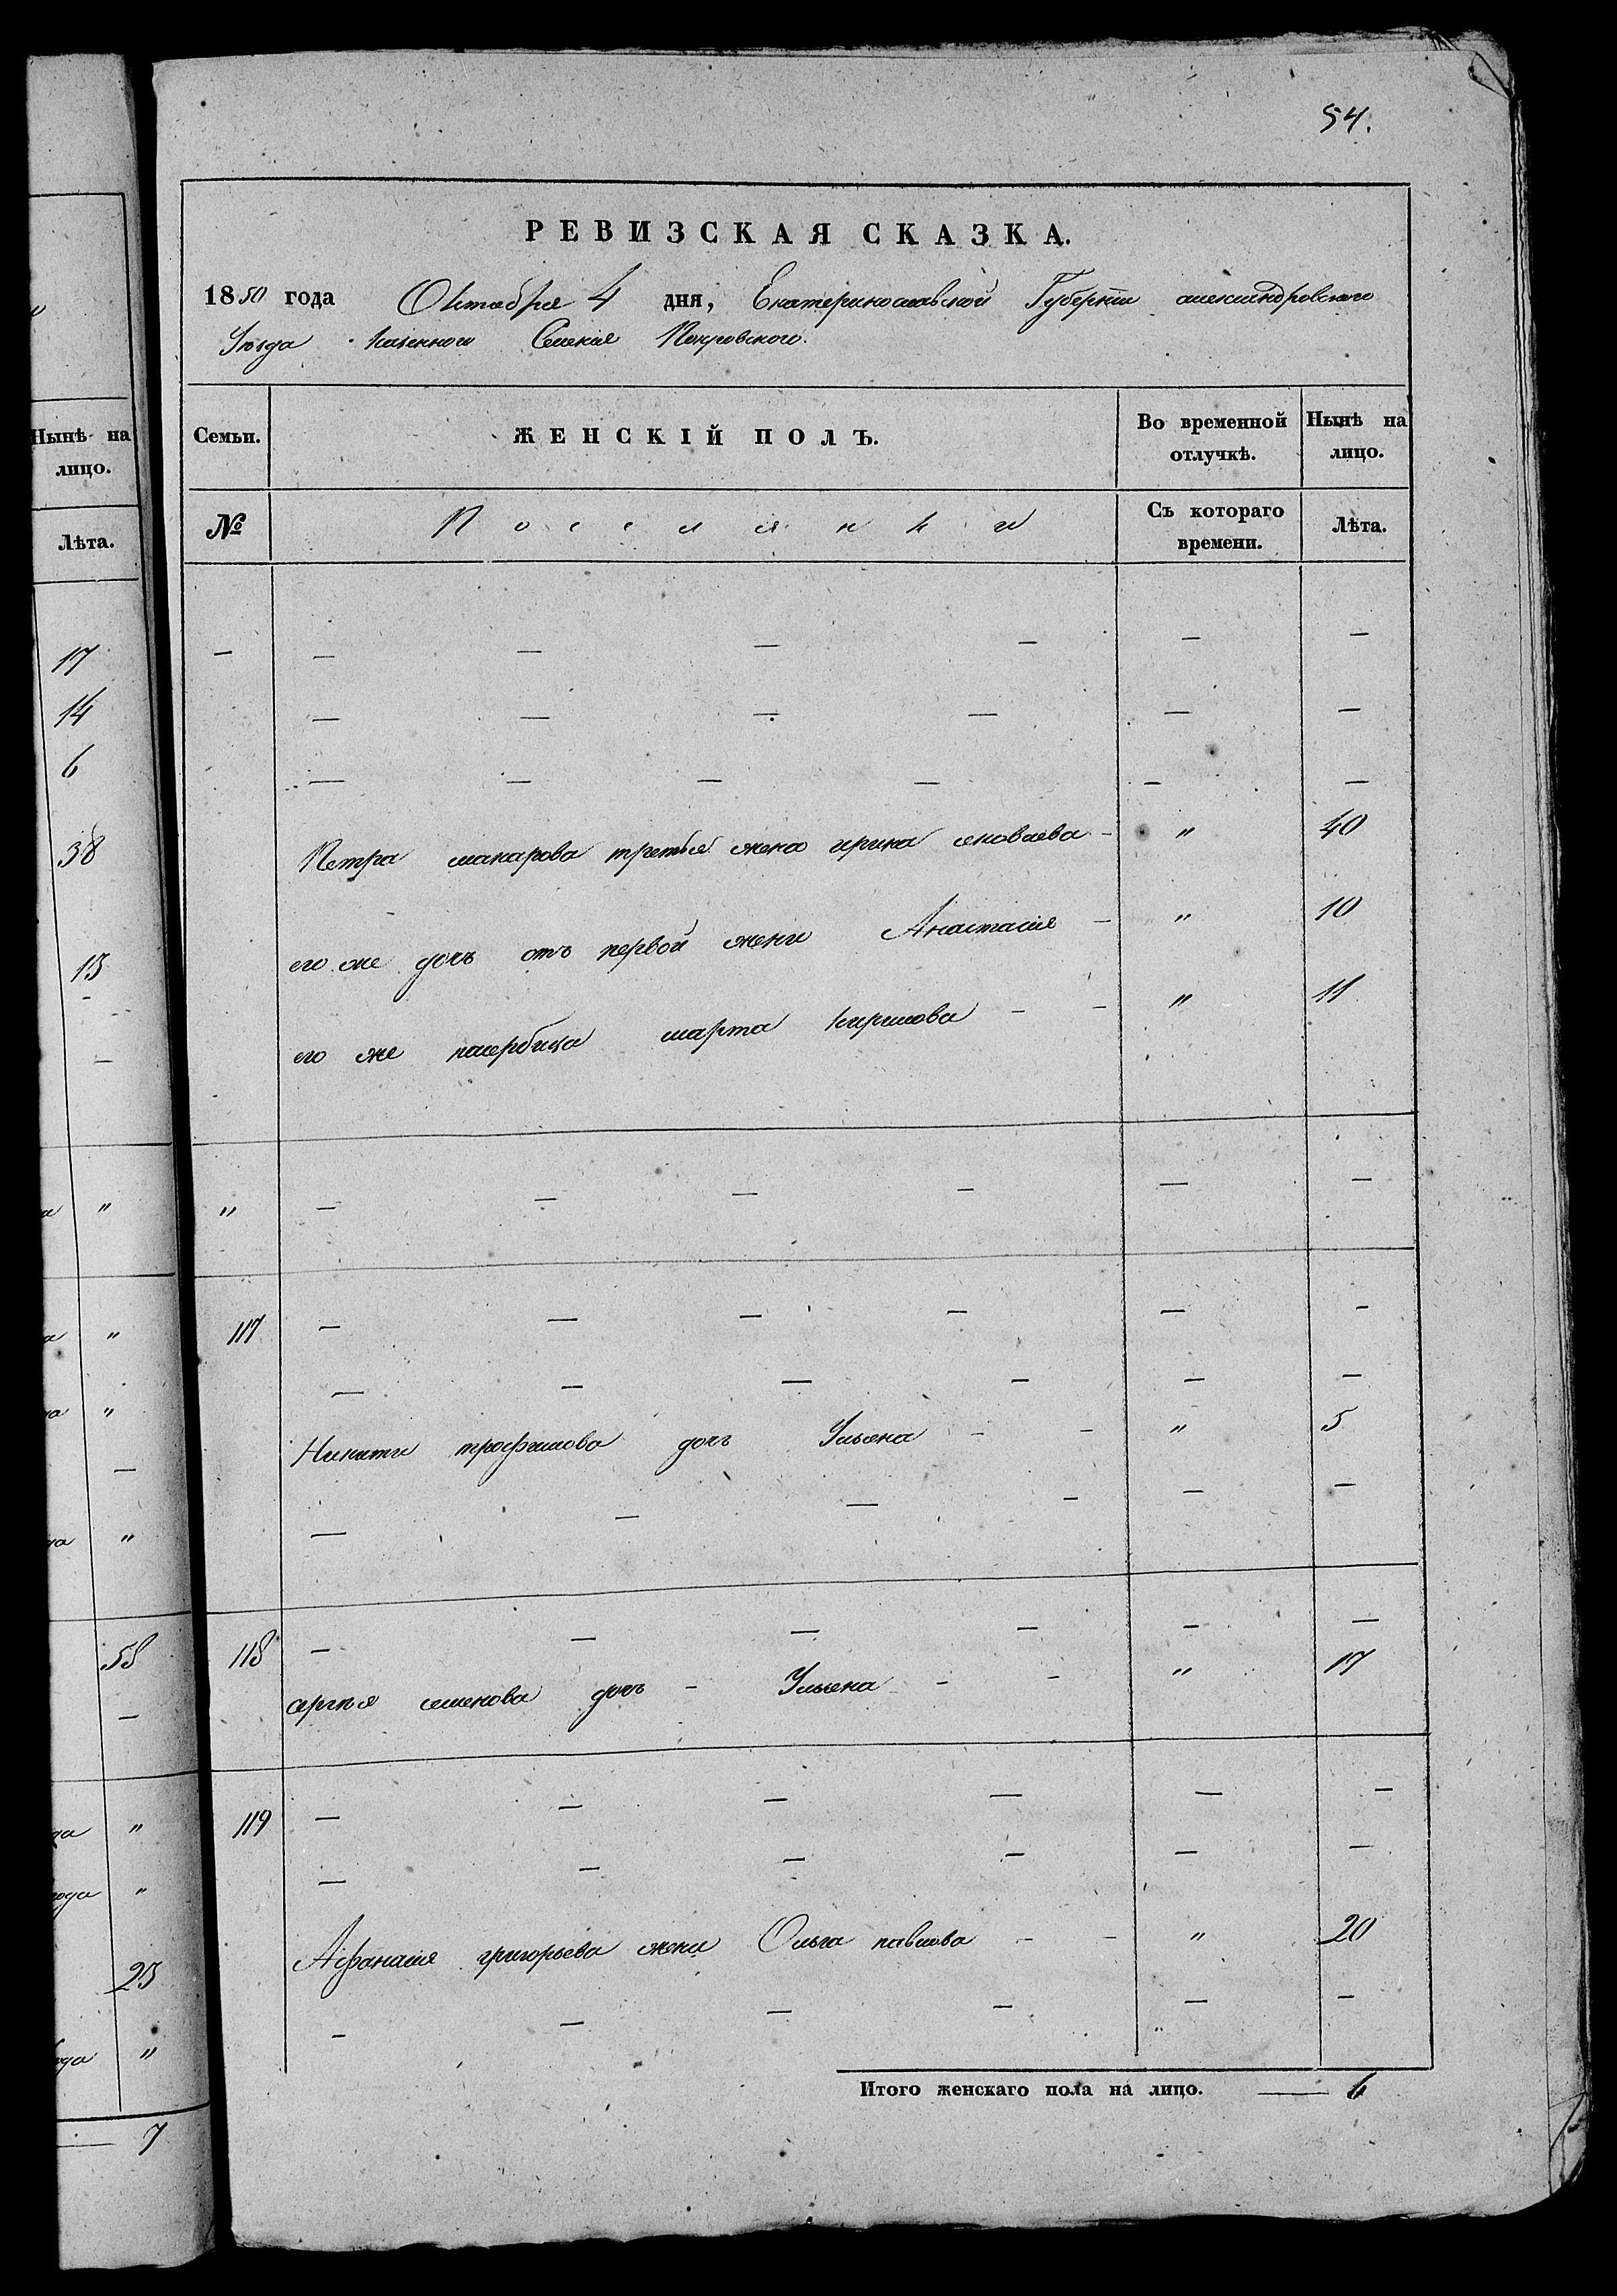 54.
РЕВИЗСКАЯ СКАЗКА.
1850 года Октября 4 дня, Екатеринославской Губернiи александровского
Уѣзда казенного Селенiя Покровского.
Нынѣ на лицо.
Семьи. ЖЕНСКІЙ ПОЛЪ. Во временной отлучкѣ. Нынѣ на лицо.
Лѣта.
№ Поселянки Съ котораго времени. Лѣта.
17 — — — — — — —
14 — — — — — —
6 — — — — — —
38 Петра макарова третья жена ирина яковлева - " 40
его же дочь отъ первой жени Анастасія - " 10
13
его же пасербица марта кирилова - - " 11
" " — — — — — —
" 117 — — — — — —
" — — — — — —
Никити трофимова дочь Ульяна - - " 5
" — — — — — —
58 118 — — — — — —
сергѣя семенова дочь - Ульяна - - " 17
" 119 — — — — — —
года " — — — — — —
23 Афанасія григорьева жена Ольга павлова - - " 20
года " — — — — — —
Итого женскаго пола на лицо. — 6
— 7